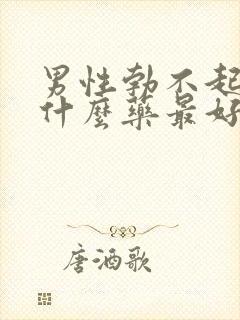 男性勃不起
什麼藥最好
唐酒歌